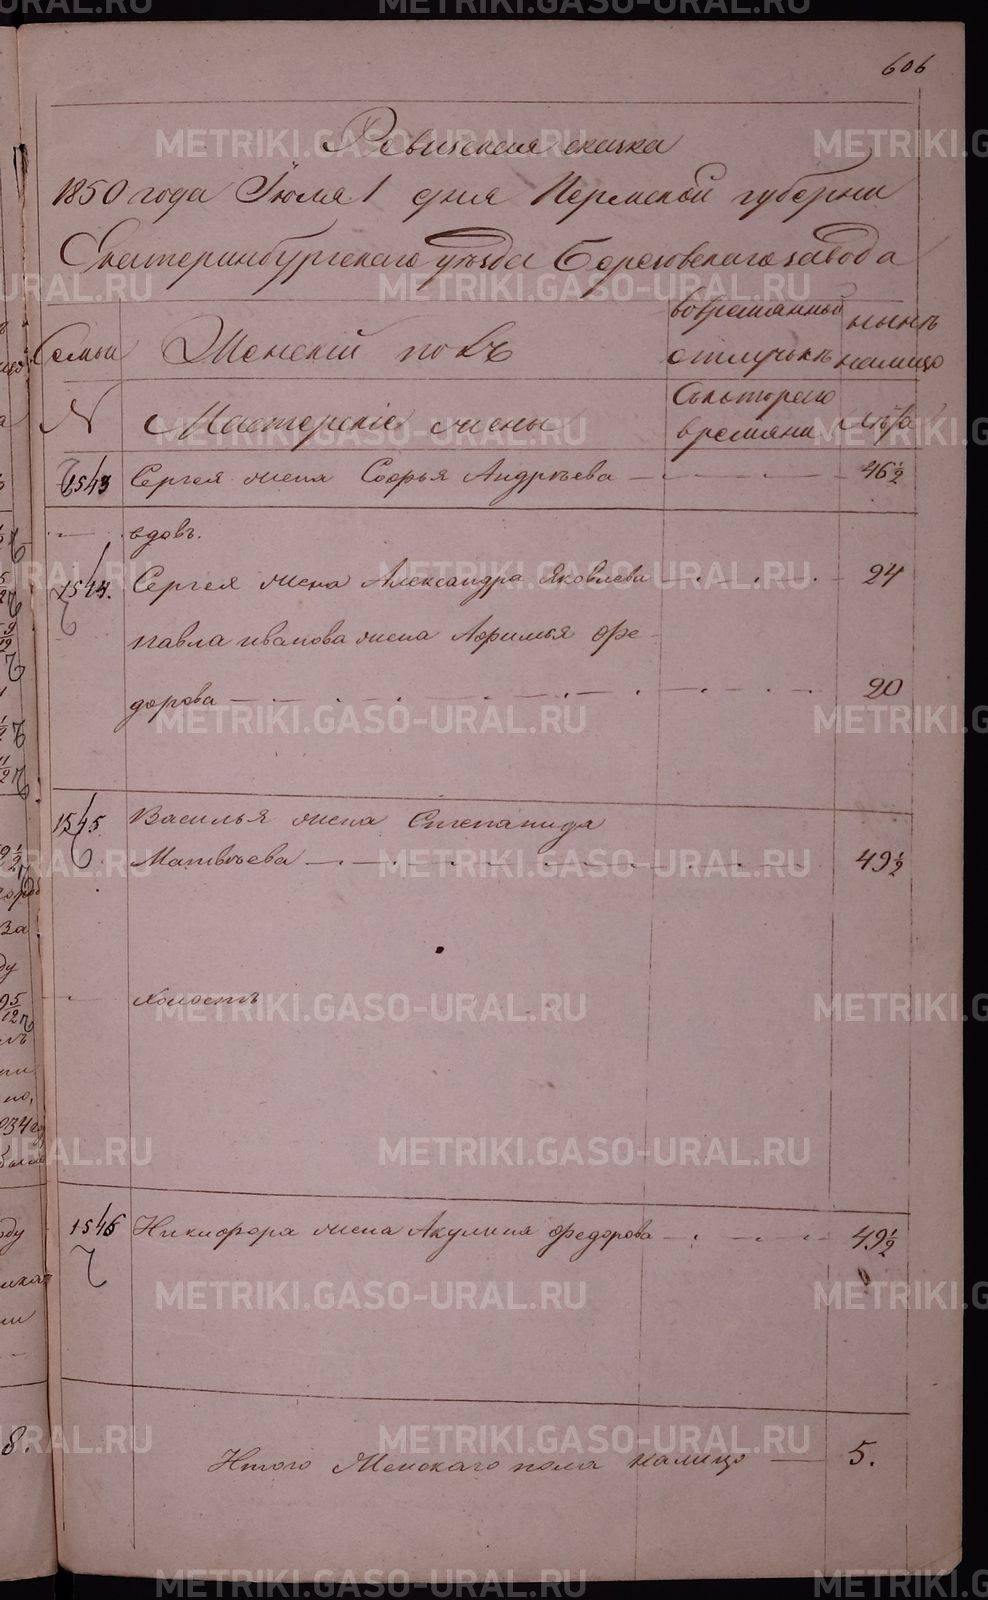 606
Ревизская сказка
1850 года Іюля 1 дня Пермской губерни
Екатеринбургскаго уѣзда Березовскаго завода
Семьи Женскій полъ во времянной отлучькѣ нынѣ налицо
N Мастерскіе жены Съкотораго времяни Лѣта
1543 Сергея жена Софья Андрѣева 46 1/2
вдовъ.
1544. Сергея жена Александра Яковлева 24
павла иванова жена Афимья Фе-
дорова 20
1545. Василья жена Степанида
Матвѣева 49 1/2
холостъ
1546 Никифора жена Акулина Федорова 49 1/2
Итого Женскаго пола налицо 5.
8.
METRIKI.GASO-URAL.RU